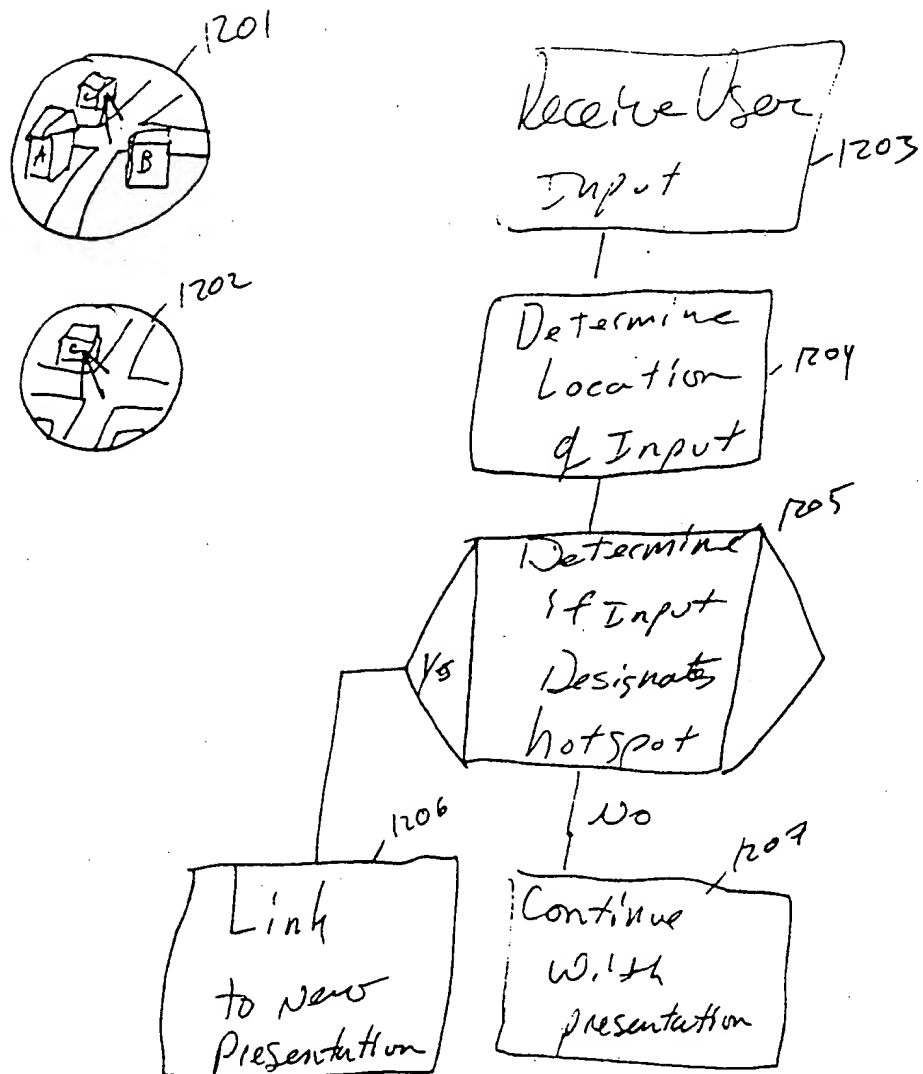 1201
C
A
B
1202
C
Receive User
Input
1203
Determine
Location
of Input
1204
1205
Determine
if Input
Designates
hotspot
Yes
No
1206
Link
to new
Presentation
1207
Continue
With
presentation